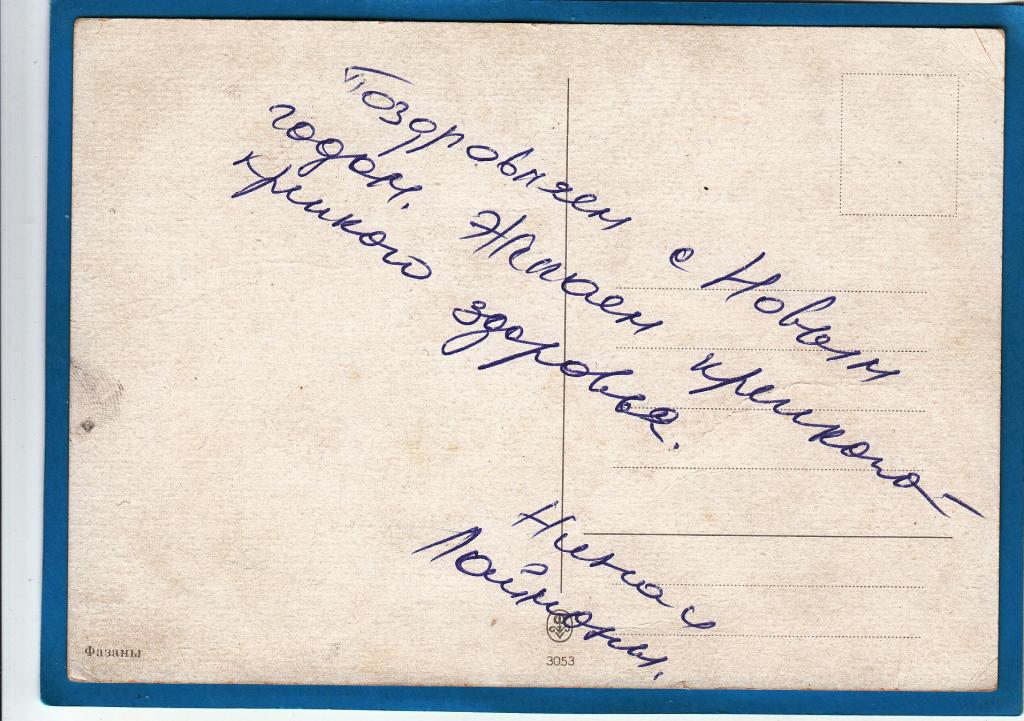 Поздровляем с Новым
годом. Желаем крепкого-
крепкого здоровья.
Нина и
Лаймоны.
Фазаны
3053